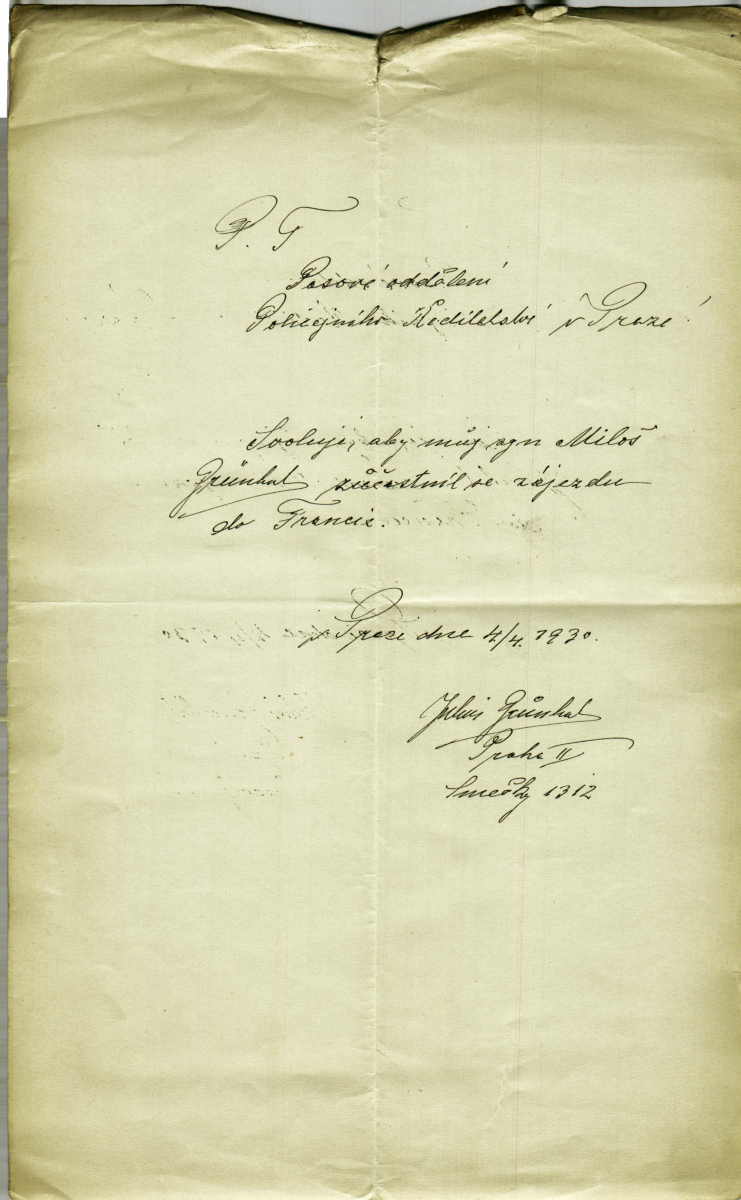 P. T
Pasové oddělení
Policejního Ředitelství v Praze
Svoluji, aby můj syn Miloš
Grünhut zůčastnil se zájezdu
do Francie.
v Praze dne 4/4. 1930.
Julius Grünhut
Praha II
Smečky 1312